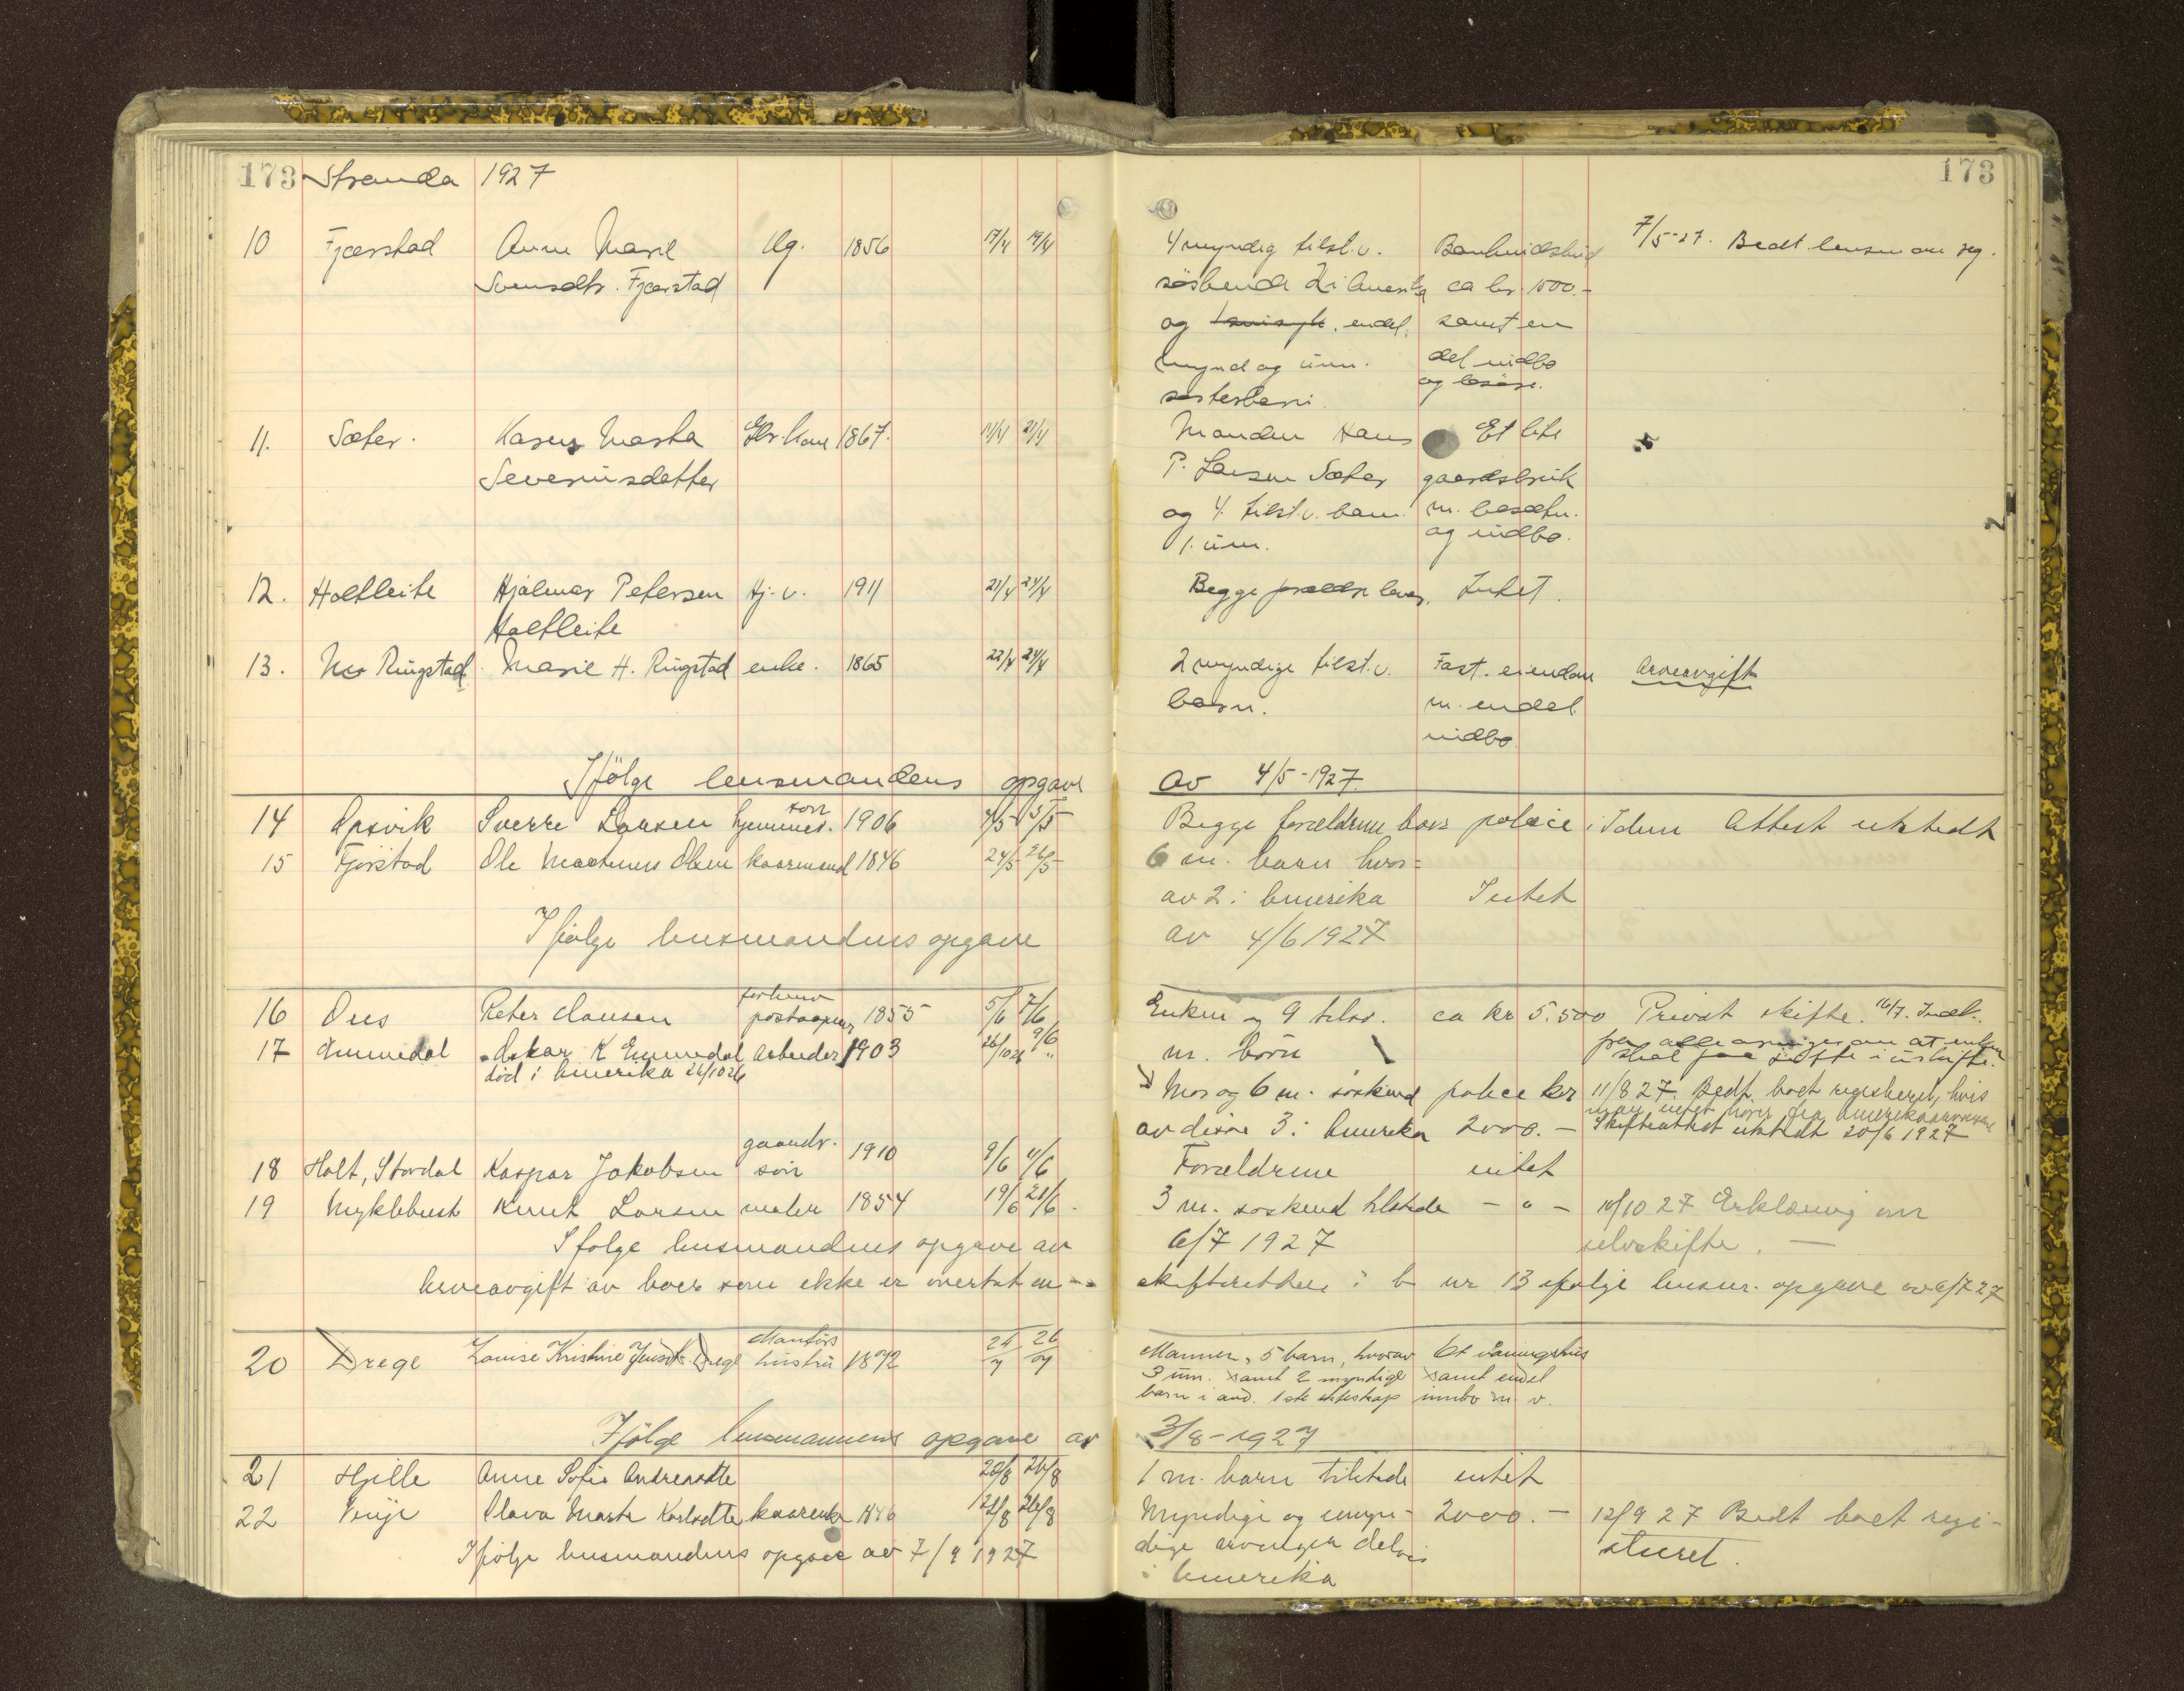 173 Stranda 1927
173
10 Fjærstad Anne Marie Ug. 1856 17/4 19/4 4 myndig tilst.v. 7/5-27. Bedt lensm om reg.
Svensdtr. Fjærstad søskende 2 i Amerika ca kr 1500.-
og endel. samt en
mynd og um. del indbo
søsterbarn og løsøre.
11. Sæter. Karen Marta Gbr. kone 1867. 14/4 21/4 Manden Hans Et lite
Severinsdatter P. Larsen Sæter gaardsbruk
og 4 tilst.v. barn. m. besætn.
1. um. og indbo.
12. Holtleite Hjalmar Petersen Hj.v. 1911 21/4 24/4 Begge foreldre lever. Intet.
Holtleite
13. Mo Ringstad. Marie H. Ringstad enke. 1865 22/4 24/4 2 myndige tilst.v. Fast. eiendom Arveavgift
barn. m. endel
indbo
Ifølge lensmandens opgave av 4/5-1927.
14 Opsvik Sverre Larsen hjemmev. søn 1906 4/5 5/5 Begge forældrene hans police i Idun Attest utstedt
15 Fjørstad Ole Martinus Olsen kaarmand 1846 24/5 26/5 6 m. barn hvor=
av 2 i Amerika Intet
Ifølge lensmandens opgave av 4/6 1927
forhenv
16 Oies Peter Clausen postaapner 1855 5/6 7/6 Enken og 9 tilst. ca kr 5.500 Privat skifte. 16/7. Indk.
m. børn fra alle arvinger om at enken
skal faa sitte i uskifte.
17 Emmedal Oskar K Emmedal Arbeider 1903 26/10 26 9/6 Mor og 6 m. søskend police kr 11/8 27. Bedt boet registreret, hvis
død i Amerika 26/10 26 man intet hører fra
av disse 3 i Amerika 2000.- Skifteattest utstedt 20/6 1927
18 Holt, Stordal Kaspar Jakobsen gaardbr. søn 1910 9/6 11/6 Forældrene intet
19 Myklebust Knut Larsen maler 1854 19/6 21/6. 3 m. søskend tilstede - " - 10/10 27 Erklæring om
Ifølge lensmandens opgave av 6/7 1927 selvskifte. -
Arveavgift av boer som ikke er overtat av skifteretten i b nr 13 ifølge lensm. opgave av 6/7 27
20 Drege Louise Kristine Jensdtr. Drege husfru 1872 24/7 26/7 Mannen, 5 barn, hvorav Et vaaningshus
3 um. samt 2 myndige samt endel
barn i avd. 1ste ekteskap innbo m. v.
Ifølge lensmannens opgave av 3/8-1927
21 Hjelle Anne Sofie Andreasdtr 20/8 26/8 1 m. barn tilstede intet
22 Vinje Olava Marta Karlsdtr kaarenke 1846 12/8 26/8 Myndige og umyn- 2000.- 12/9 27 Bedt boet regi-
Ifølge lensmandens opgave av 7/9 1927 dige arvinger delvis streret.
i Amerika